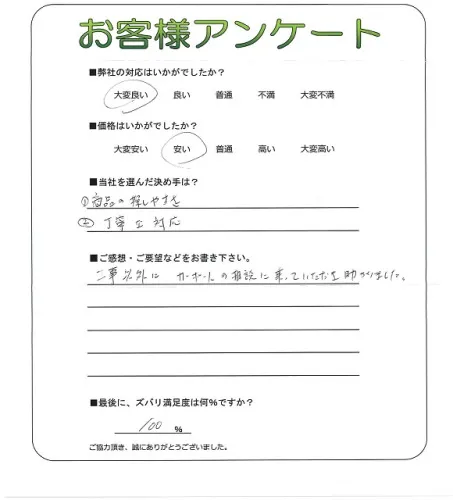 お客様アンケート
■弊社の対応はいかがでしたか？
大変良い 良い 普通 不満 大変不満
■価格はいかがでしたか？
大変安い 安い 普通 高い 大変高い
■当社を選んだ決め手は？
①商品の探しやすさ
②丁寧な対応
■ご感想・ご要望などをお書き下さい。
工事以外に カーポートの相談に乗っていただき助かりました。
■最後に、ズバリ満足度は何%ですか？
100 %
ご協力頂き、誠にありがとうございました。